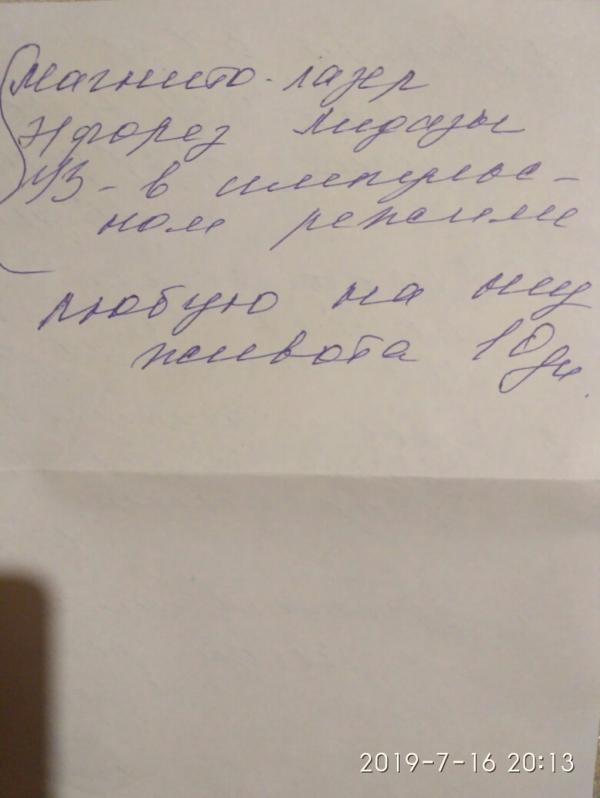 магнито-лазер
Эфорез лидазы
УЗ - в импульс-
ном режиме
любую на низ
живота 10дн.
2019-7-16 20:13